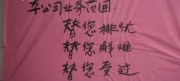 本公司业务范围:
替您排忧
替您解难
替您受过